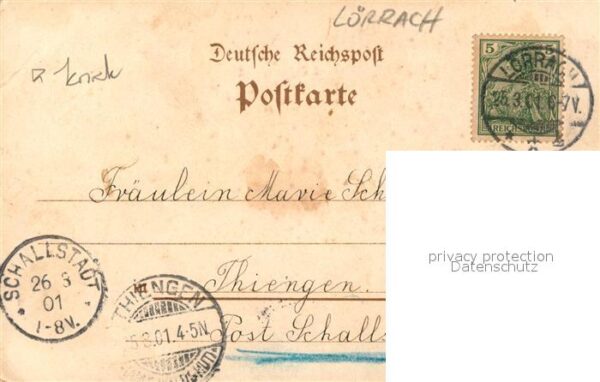 LÖRRACH
Deutsche Reichspost
Postkarte
knick
5 5
REICHSPOST
LÖRRACH
26.3.01.6-7V.
Fräulein Marie Sch
privacy protection
Datenschutz
Thiengen.
Post Schalls
SCHALLSTADT
26 3
01
1-8V.
THIENGEN
3.01.4-5N